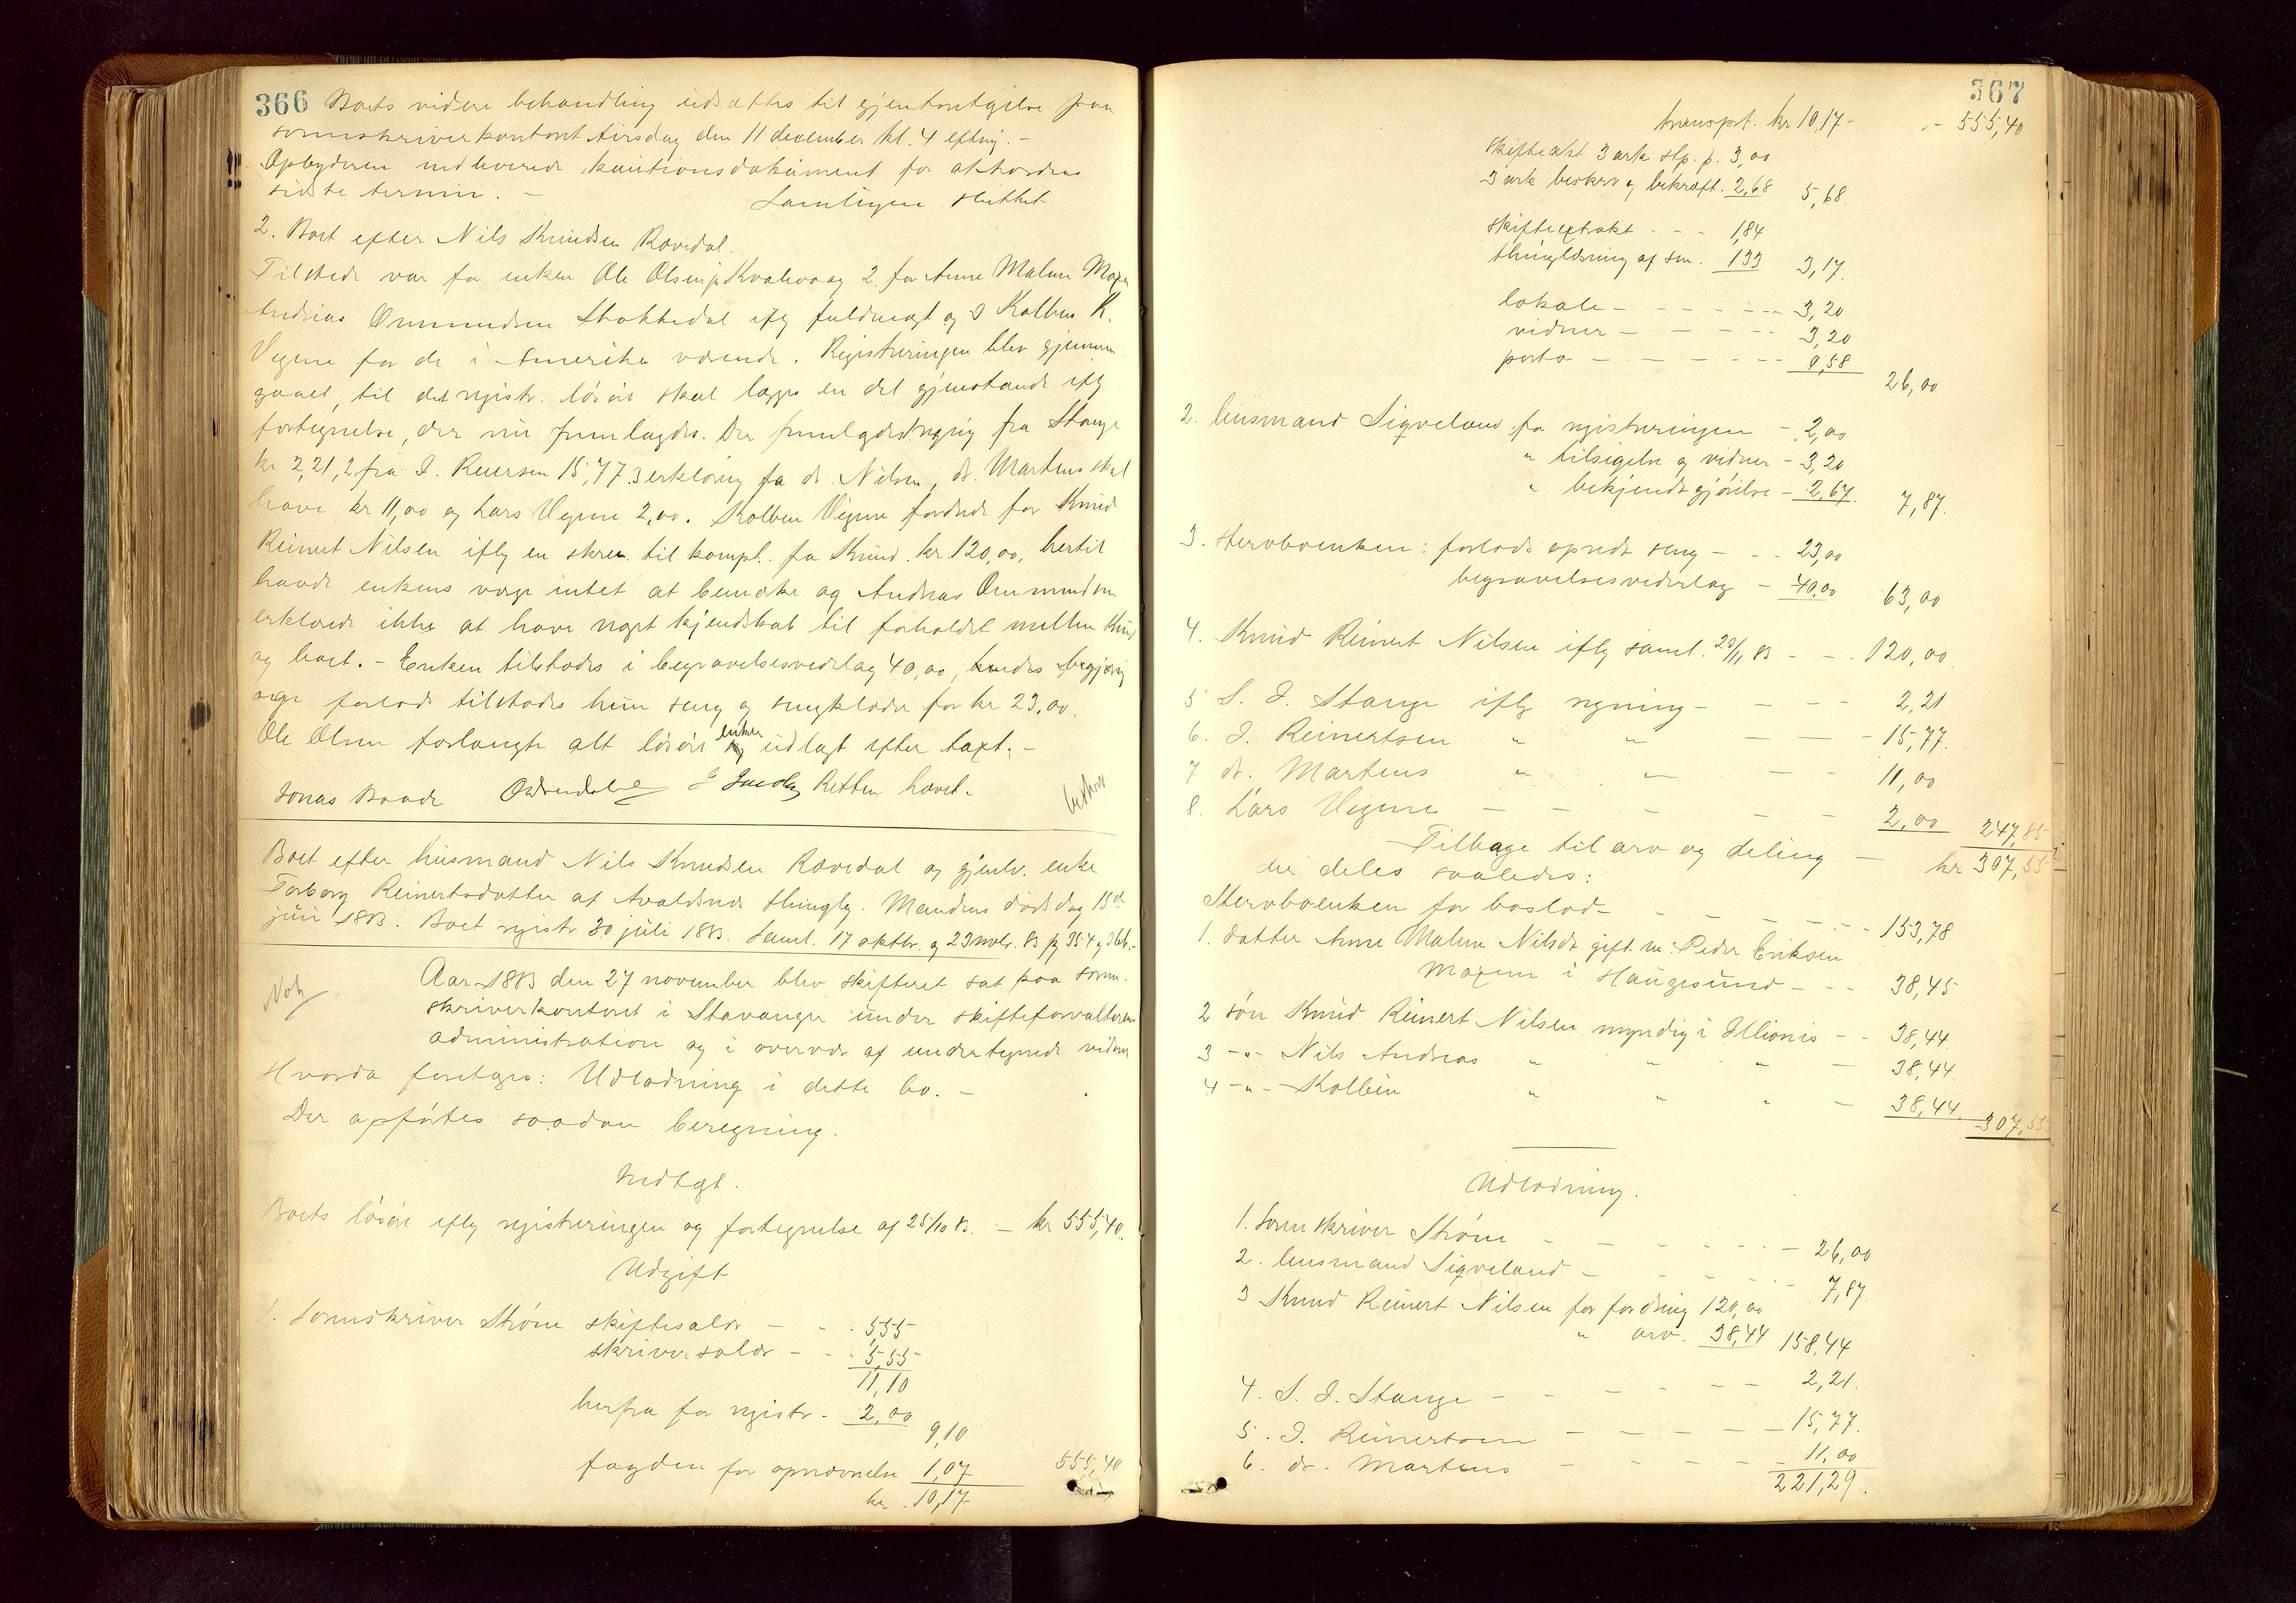 366 Boets videre behandling udsættes til gjenforetagelse paa
sorenskriverkontoret tirsdag den 11 december kl. 4 efterm. -
Opbyderen indleverede kautionsdokument for akkordens
sidste termin. - Samlingen sluttet
2. Boet efter Nils Knudsen Rævedal.
Tilstede var for enken Ole Olsen Kvalevaag 2. for Anne Malene
Andreas Ommundsen Stokkedal iflg fuldmagt og 3 Kolben K.
Vegene for de i Amerika værende. Registreringen blev gjennem
gaaet, til det registr. løsøre skal lægges en del gjenstande iflg
fortegnelse, der nu fremlagdes. Der fremlagdes regning fra Stange
kr 2,21, 2 fra J. Reiersen 15,77 3 erklæring fra dr. Nilsen, dr. Martens skal
have kr 11,00 og Lars Vegene 2,00. Kolben Vegene fordrede for Knud
Reinert Nilsen iflg en skr. til kompt. fra Knud. kr 120,00, hertil
havde enkens værge intet at bemærke og Andreas Ommundsen
erklærede ikke at have noget kjendskab til forholdet mellem Knud
og boet. - Enken tilstodes i begravelsesvederlag 40,00, hendes begjæring
forlods tilstodes hun seng og sengklæder for kr 23,00.
Ole Olsen forlangte alt løsøre enken udlagt efter taxt. -
Jonas Baade Retten hævet. -
beskrev
Boet efter husmand Nils Knudsen Rævedal og gjenlev. enke
Torborg Reinertsdatter af Avaldsnæs thinglg. Mandens dødsdag 15de
juni 1883. Boet registr 30 juli 1883. Saml. 17 oktbr. og 23 novbr. 83 pg 354 og 366. -
Not
Aar 1883 den 27 november blev skifteret sat paa soren-
skriverkontoret i Stavanger under skifteforvalterens
administration og i overvær af undertegnede vidner
Hvorda foretages: Udlodning i dette bo. -
Der opførtes saadan beregning.
Indtægt.
Boets løsøre iflg registreringen og fortegnelse af 25/10 83. - kr 555,40.
Udgift
1. Sorenskriver Strøm skiftesalær - - 5,55
skriversalær - - 5,55
11,10
herfra for registr - 2,00
9,10
fogden for opnævnelse 1,07 555,40
kr. 10,17
367
transprt. kr 10,17 - - 555,40
skifteakt 3 ark stp. p. 3,00
3 ark beskrev og bekræft. 2,68 5,68.
skifteextrakt - - - 1,84
thinglæsning af sm. 133 3,17.
lokale - - - - - - 3,20
vidner - - - - - 3,20
porto - - - - - - 0,58
26,00
2. husmand Sigveland for registreringen - 2,00
" tilsigelse og vidner - 3,20
" bekjendtgjørelse - 2,67. 7,87.
3. Stervboenken: forlods opredt seng - - - 23,00
begravelsesvederlag - 40,00 63,00
4. Knud Reinert Nilsen iflg saml. 23/11 83 - - - 120,00.
5 S. J. Stange iflg regning - - - - 2,21
6. J. Reinertsen " " - - - 15,77.
7 dr. Martens " " - - 11,00
8. Lars Vegene - - - - - 2,00 247,85
Tilbage til arv og deling - kr 307,55
der deles saaledes:
Stervboenken for boslod - - - - - - - 153,78
1. datter Anne Malene Nilsdr gift m: Peder Eriksen
i Haugesund - - - 38,45
2 søn Knud Reinert Nilsen myndig i Illionis - - 38,44.
3 - " - Nils Andreas " " " - 38,44
4 - " - Kolbein " " " - 38,44. 307,55
Udlodning.
1. Sorenskriver Strøm - - - - - - - 26,00
2. husmand Sigveland - - - - - - 7,87.
3 Knud Reinert Nilsen for fordring 120,00
" arv. 38,44 158,44
4. S. J. Stange - - - - - - 2,21.
5. J. Reinertsen - - - - - 15,77.
6. dr. Martens - - - - - 11,00
221,29.